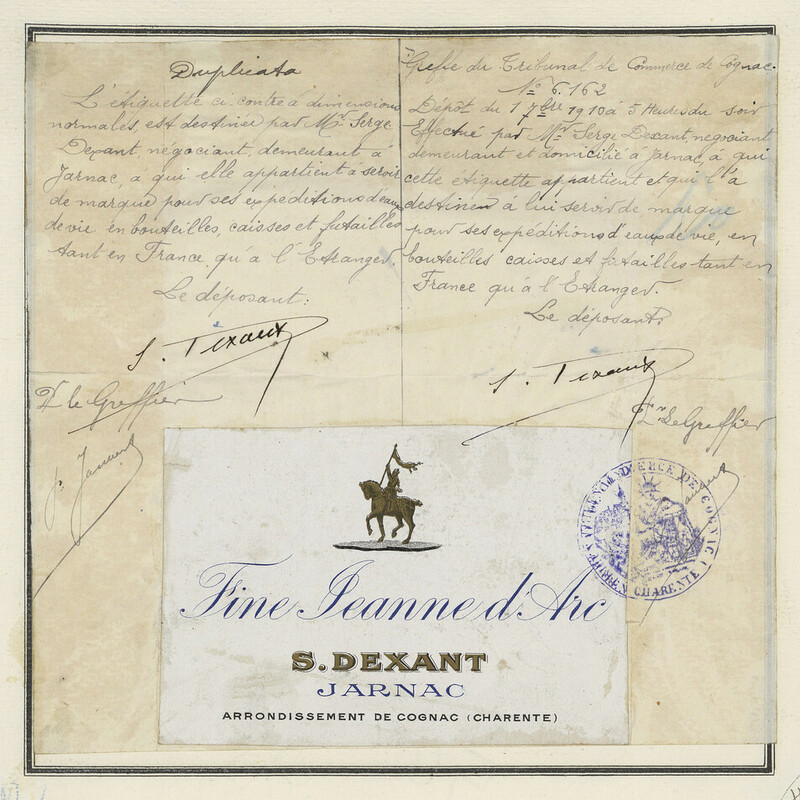 Duplicata
L'étiquette ci contre à dimensions
normales, est destinée par Mr. Serge
Dexant, négociant, demeurant à
Jarnac, a qui elle appartient à servir
de marque pour ses expéditions d'eau
de vie en bouteilles, caisses et futailles
tant en France qu'à l'Etranger.
Le déposant:
S. Dexant
Pr le Greffier
Greffe du Tribunal de Commerce de Cognac.
No 6.162
Dépôt du 1 7bre 1910 à 5 Heures du soir
Effectué par Mr Serge Dexant, négociant
demeurant et domicilié à Jarnac, à qui
cette étiquette appartient et qui l'a
destinée à lui servir de marque
pour ses expéditions d'eaux de vie, en
bouteilles caisses et futailles tant en
France qu'à l'Etranger.
Le déposant.
S. Dexant
Pr Le Greffier
COMMERCE DE COGNAC
CHARENTE
Fine Jeanne d'Arc
S. DEXANT
JARNAC
ARRONDISSEMENT DE COGNAC (CHARENTE)